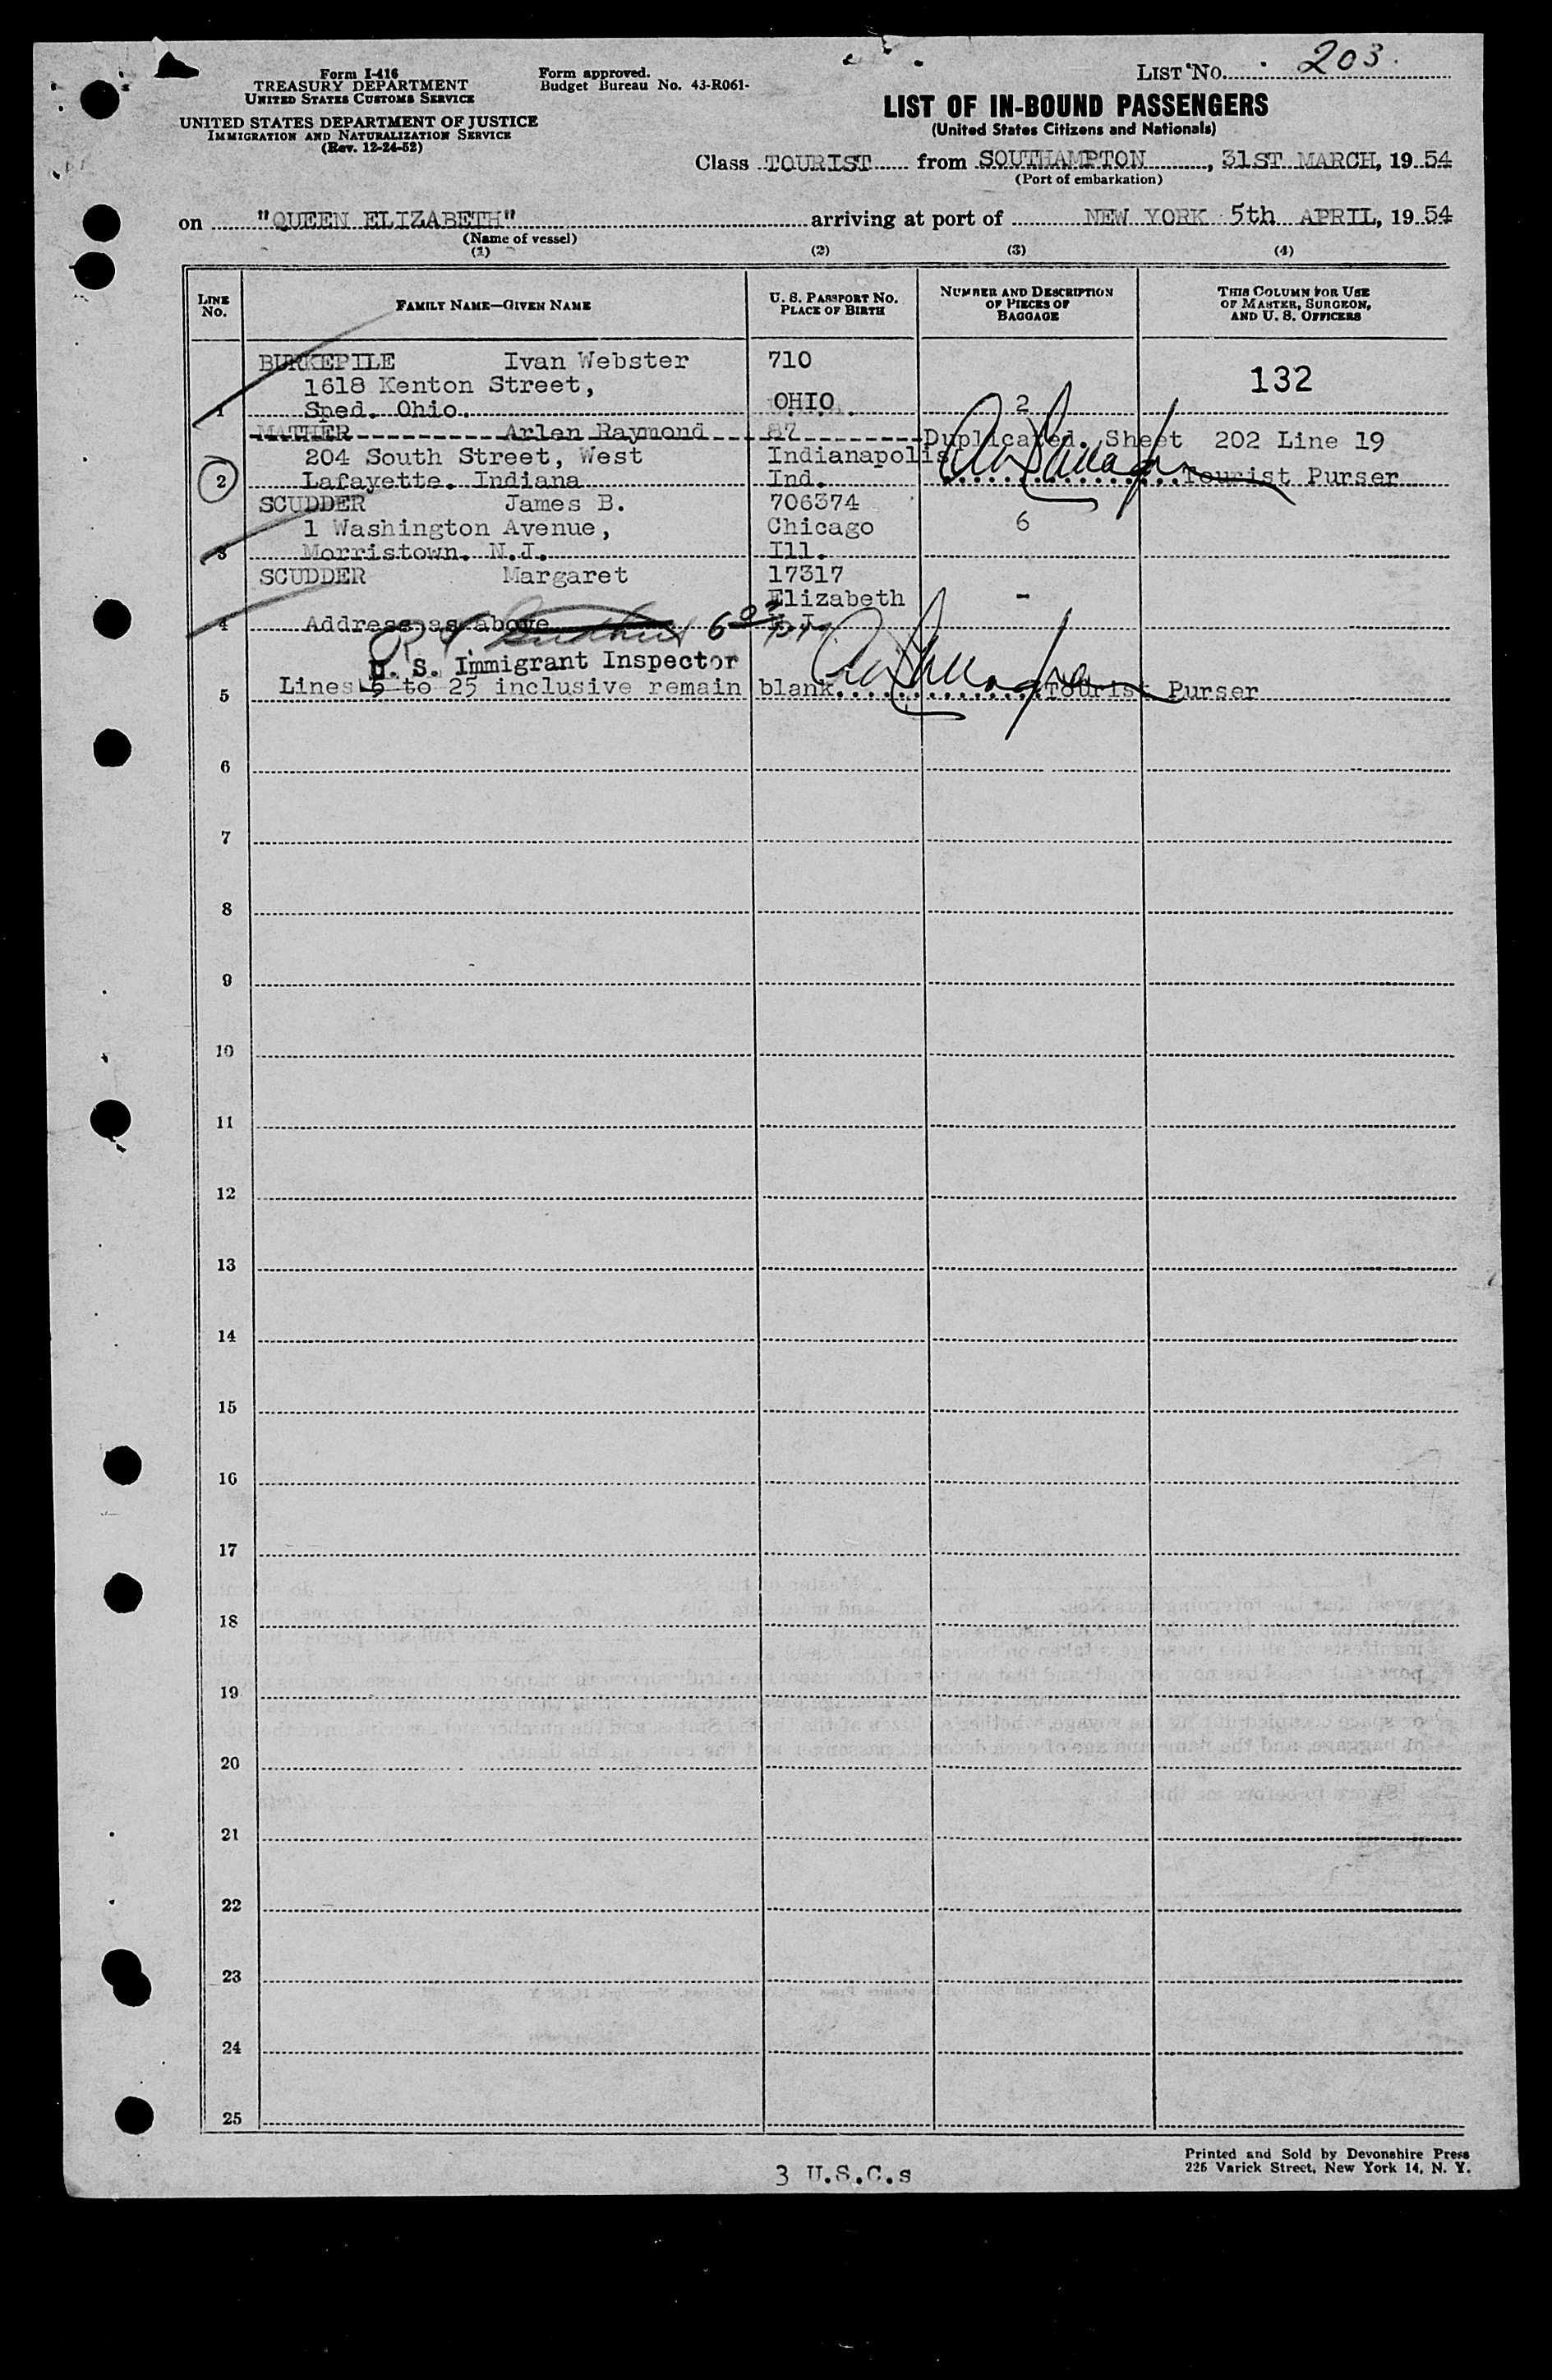 Form I-416
TREASURY DEPARTMENT
UNITED STATES CUSTOMS SERVICE
UNITED STATES DEPARTMENT OF JUSTICE
IMMIGRATION AND NATURALIZATION SERVICE
(Rev. 12-24-52)
Form approved.
Budget Bureau No. 43-R061-
LIST No. 203.
LIST OF IN-BOUND PASSENGERS
(United States Citizens and Nationals)
Class TOURIST from SOUTHAMPTON, 31ST MARCH, 19 54
(Port of embarkation)
on "QUEEN ELIZABETH" arriving at port of NEW YORK 5th APRIL, 19 54
(Name of vessel)
(1) (2) (3) (4)
LINE No. FAMILY NAME—GIVEN NAME U. S. PASSPORT No. PLACE OF BIRTH NUMBER AND DESCRIPTION OF PIECES OF BAGGAGE THIS COLUMN FOR USE OF MASTER, SURGEON, AND U. S. OFFICERS
BURKEPILE Ivan Webster 710
1618 Kenton Street, 132
1 Sped. Ohio. OHIO 2
MATHER Arlen Raymond 87 Duplicated. Sheet 202 Line 19
204 South Street, West Indianapolis
2 Lafayette. Indiana Ind. Tourist Purser
SCUDDER James B. 706374
1 Washington Avenue, Chicago 6
3 Morristown. N.J. Ill.
SCUDDER Margaret 17317
Elizabeth -
4 Address as above N.J.
U. S. Immigrant Inspector
5 Lines 5 to 25 inclusive remain blank. Tourist Purser
6
7
8
9
10
11
12
13
14
15
16
17
18
19
20
21
22
23
24
25
3 U.S.C.s
Printed and Sold by Devonshire Press
225 Varick Street, New York 14, N. Y.